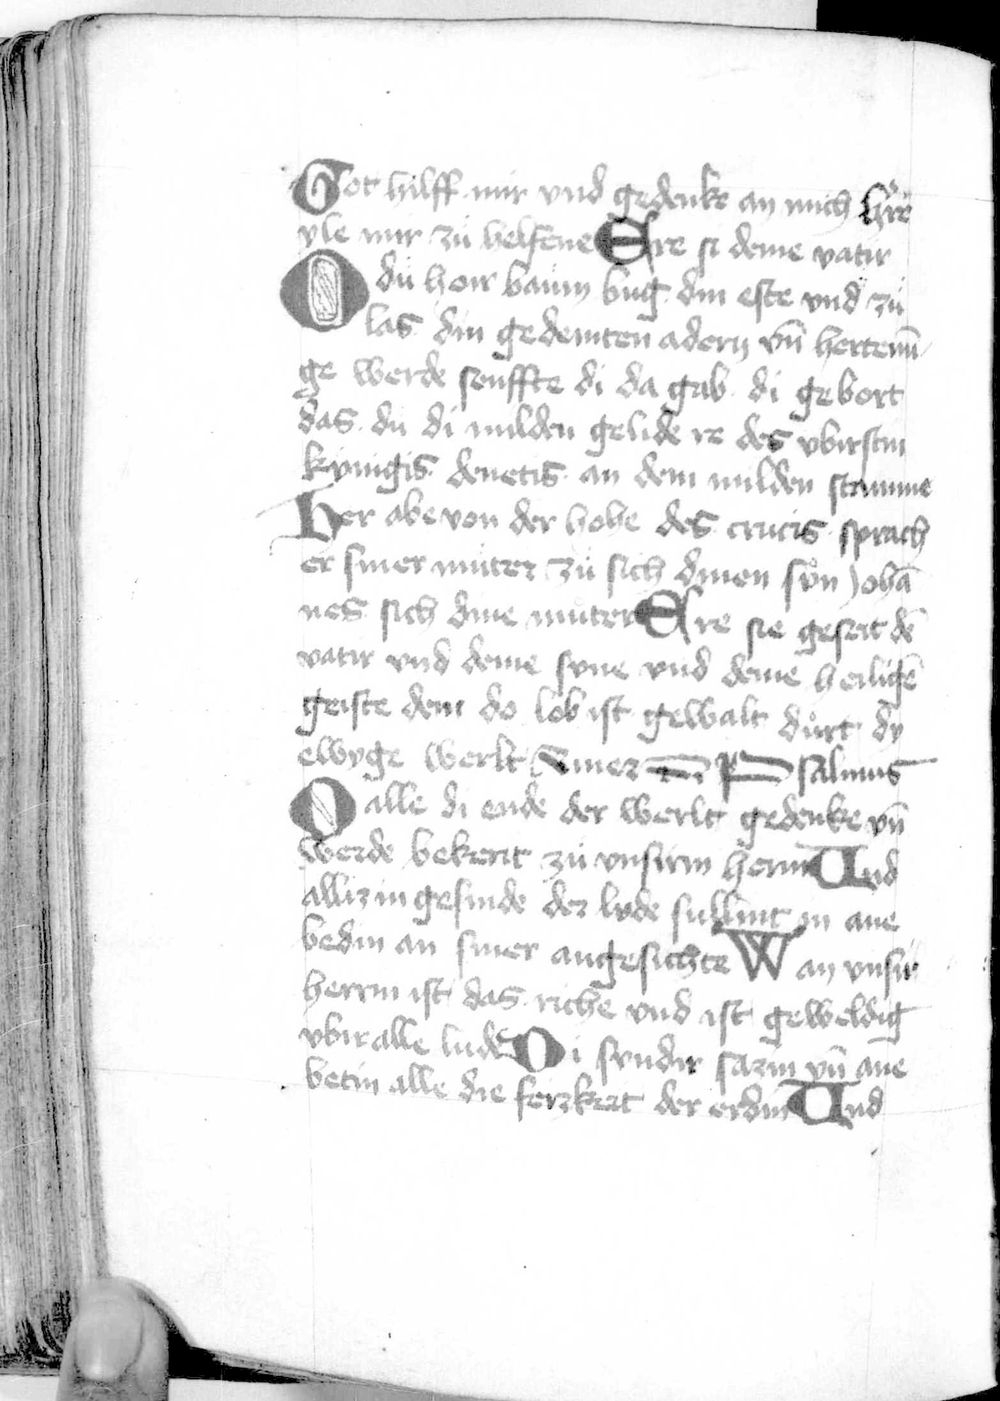 Got hilff mir vnd gedenke an mich hre
yle mir zu helfene Ere si deme vatir
O du hoir baum bug din este vnd zu
las din gedemten adern vn̄ hertenū
ge werde senffte di da gab di gebort
das du di milden gelide re des vbirstin
kynigis denetis an dem milden stamme
Her abe von der hohe des crucis sprach
er siner muter zu sich dinen son Johā
nes sich dine muter Ere sie geseit dē
vatir vnd deme sone vnd deme heiligē
geiste dem do lob ist gewalt durt dy
ewyge werlt Amen Psalmus
O alle di ende der werlt gedenke vn̄
werde bekert zu vnsirm herrn Und
alliz in gesinde der lude sullint in ane
bedin an siner angesichte Wan vnsir
herrin ist das riche vnd ist geweldig
vbir alle lude Di sundir sazin vn̄ ane
betin alle die der erdin Und